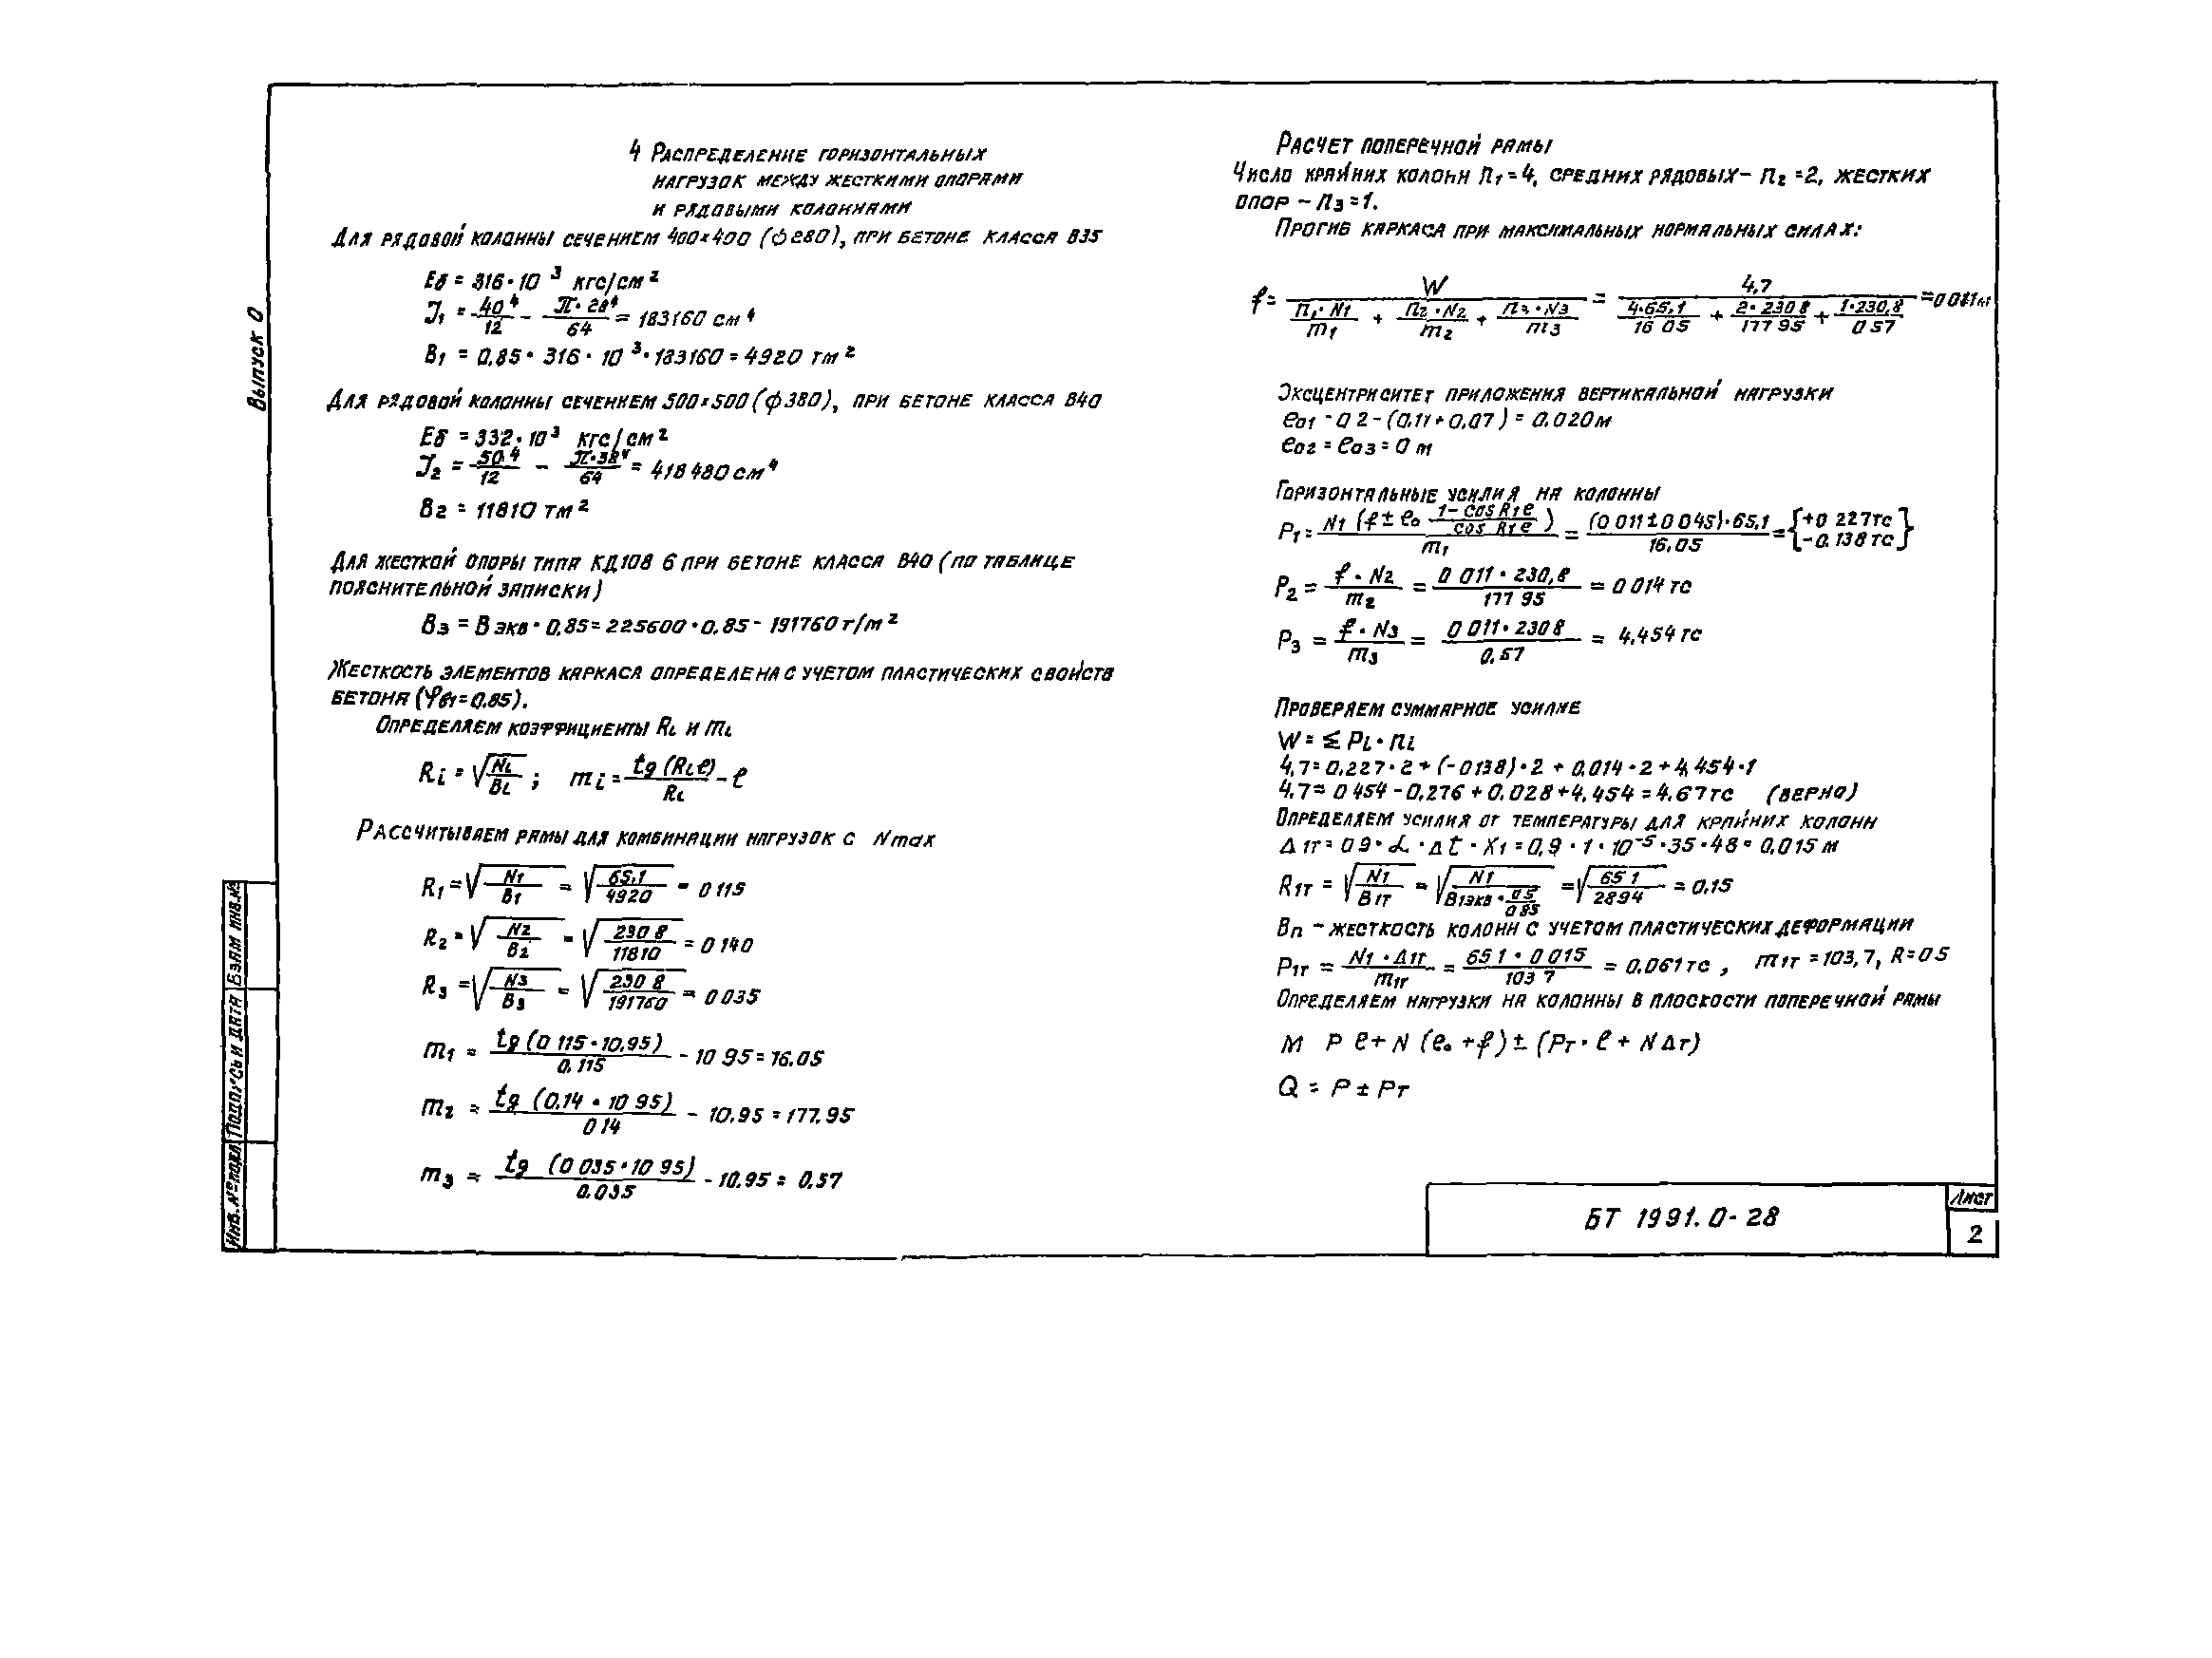 Выпуск 0
4 Распределение горизонтальных
нагрузок между жесткими опорами
и рядовыми колоннами
Для рядовой колонны сечением 400×400 (ф280), при бетоне класса В35
Eб = 316·10³ кгс/см²
J₁ = 40⁴/12 - π·28⁴/64 = 183160 см⁴
B₁ = 0.85·316·10³·183160 = 4920 тм²
Для рядовой колонны сечением 500×500 (ф380), при бетоне класса В40
Eб = 332·10³ кгс/см²
J₂ = 50⁴/12 - π·38⁴/64 = 418480 см⁴
B₂ = 11810 тм²
Для жесткой опоры типа КД108 6 при бетоне класса В40 (по таблице
пояснительной записки)
B₃ = Bэкв·0.85 = 225600·0.85 - 191760 т/м²
Жесткость элементов каркаса определена с учетом пластических свойств
бетона (φв₁=0.85).
Определяем коэффициенты Ri и mi
Ri = √(Ni/Bi); mi = tg(Riℓ)/Ri - ℓ
Рассчитываем рамы для комбинации нагрузок с Nmax
R₁ = √(N₁/B₁) = √(65.1/4920) = 0 115
R₂ = √(N₂/B₂) = √(230 8/11810) = 0 140
R₃ = √(N₃/B₃) = √(230 8/191760) = 0 035
m₁ = tg(0 115·10.95)/0.115 - 10 95 = 16.05
m₂ = tg(0.14·10 95)/0 14 - 10.95 = 177.95
m₃ = tg(0 035·10 95)/0.035 - 10.95 = 0.57
Расчет поперечной рамы
Число крайних колонн n₁=4, средних рядовых- n₂=2, жестких
опор - n₃=1.
Прогиб каркаса при максимальных нормальных силах:
f = W/(n₁·N₁/m₁ + n₂·N₂/m₂ + n₃·N₃/m₃) = 4.7/(4·65.1/16 05 + 2·230 8/177 95 + 1·230,8/0 57) = 0 011 м
Эксцентриситет приложения вертикальной нагрузки
e₀₁ - 0 2 - (0.11+0.07) = 0.020м
e₀₂ = e₀₃ = 0 м
Горизонтальные усилия на колонны
P₁ = N₁(f ± e₀ (1-cos R₁ℓ)/(cos R₁ℓ))/m₁ = (0 011±0 045)·65.1/16.05 = {+0 227тс -0.138тс}
P₂ = f·N₂/m₂ = 0 011·230,8/177 95 = 0 014 тс
P₃ = f·N₃/m₃ = 0 011·230 8/0.57 = 4.454 тс
Проверяем суммарное усилие
W = ≤ Pi·ni
4,7 = 0.227·2 + (-0138)·2 + 0.014·2 + 4,454·1
4.7 = 0 454 - 0.276 + 0.028 + 4.454 = 4.67тс (верно)
Определяем усилия от температуры для крайних колонн
Δ1т = 0 9·α·Δt·X₁ = 0,9·1·10⁻⁵·35·48 = 0.015 м
R1т = √(N₁/B1т) = √(N₁/(B1экв·0.5/0.85)) = √(65 1/2894) = 0.15
Bп - жесткость колонн с учетом пластических деформации
P1т = N₁·Δ1т/m1т = 65 1·0 015/103 7 = 0.061тс, m1т = 103,7, R=0 5
Определяем нагрузки на колонны в плоскости поперечной рамы
M P ℓ + N (e₀ + f) ± (Pт·ℓ + N Δт)
Q = P ± Pт
Инв. № подл. Подпись и дата Взам инв.№
БТ 1991.0-28
Лист
2